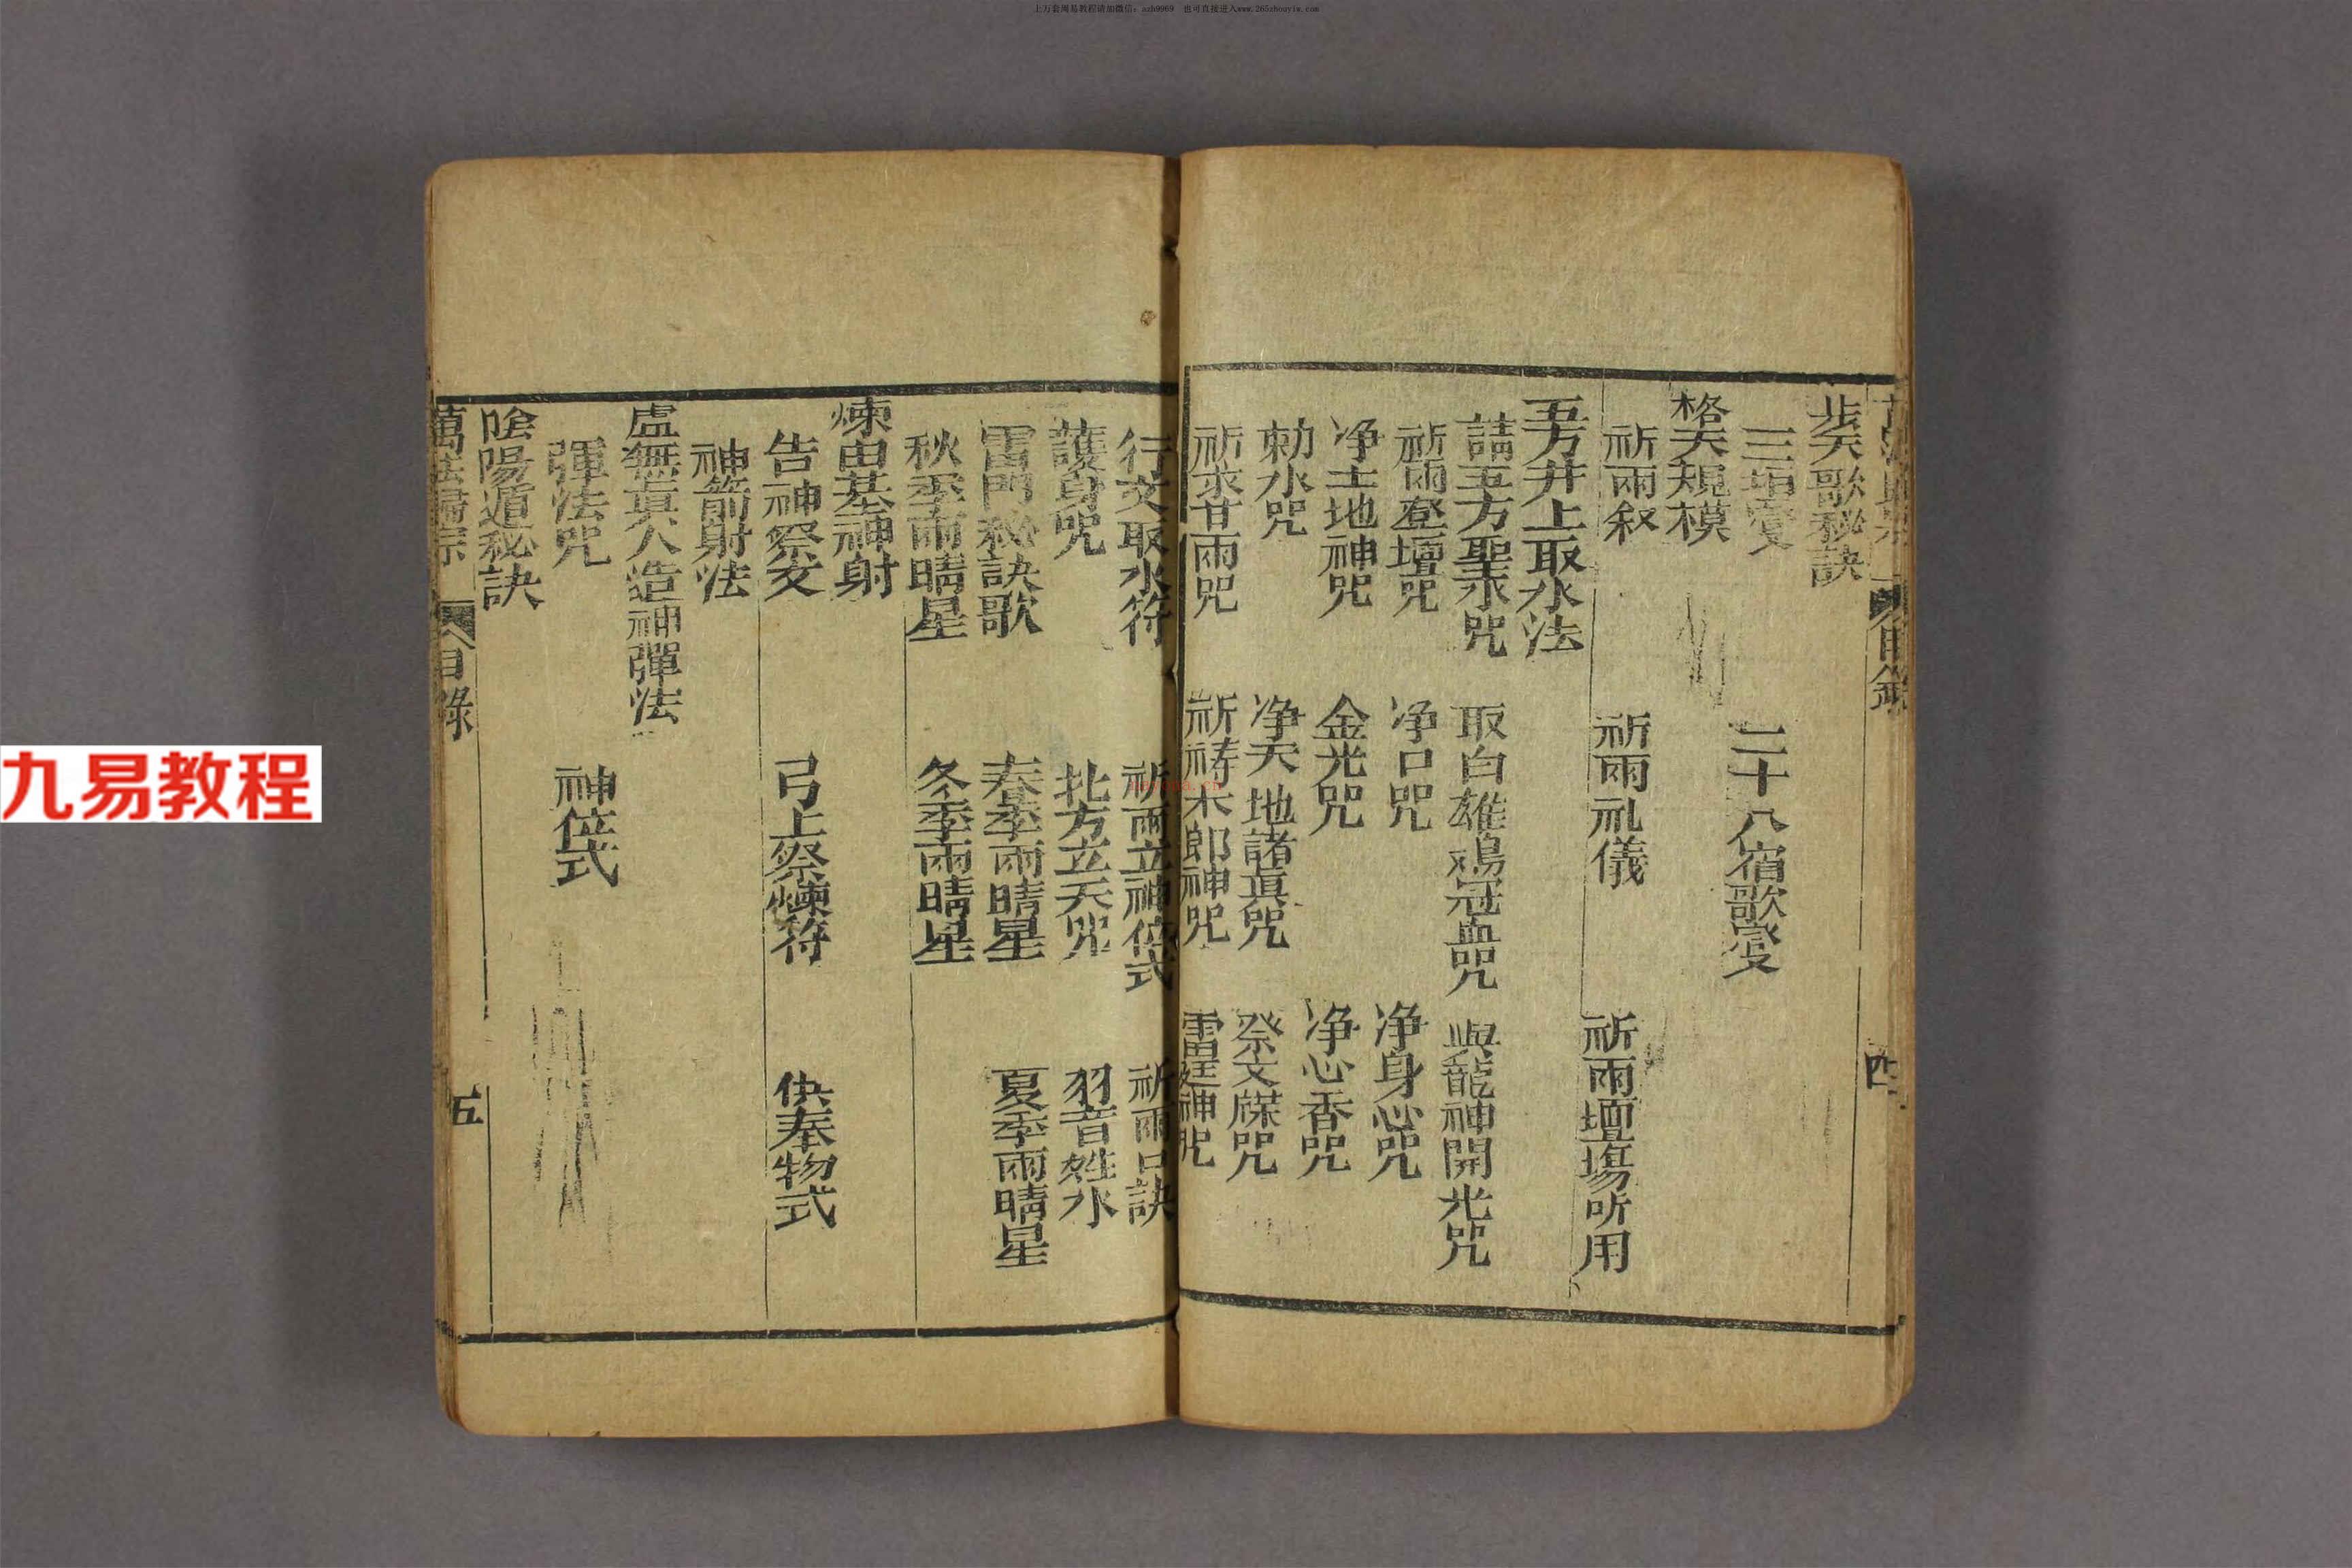 上万套周易教程请加微信：zzh9969 也可直接进入www.265zhouyiw.com
九易教程
目錄
四
步天歌秘訣
三垣
二十八宿歌
格天規模
祈雨叙
祈雨礼儀
祈雨壇場所用
五方井上取水法
請五方聖水咒
取白雄鳮冠血咒
與龍神開光咒
祈雨登壇咒
净口咒
净身心咒
净土地神咒
金光咒
净心香咒
勅水咒
净天地諸真咒
祭文牒咒
祈求甘雨咒
祈祷木郎神咒
雷霆神咒
行文取水符
祈雨立神位式
祈雨口訣
護身咒
北方立天咒
羽音姓水
雷門秘訣歌
春季雨晴星
夏季雨晴星
秋季雨晴星
冬季雨晴星
煉由基神射
告神祭文
弓上祭煉符
供奉物式
神箭射法
虛無真人造神彈法
彈法咒
神位式
陰陽遁秘訣
萬法歸宗
目錄
五